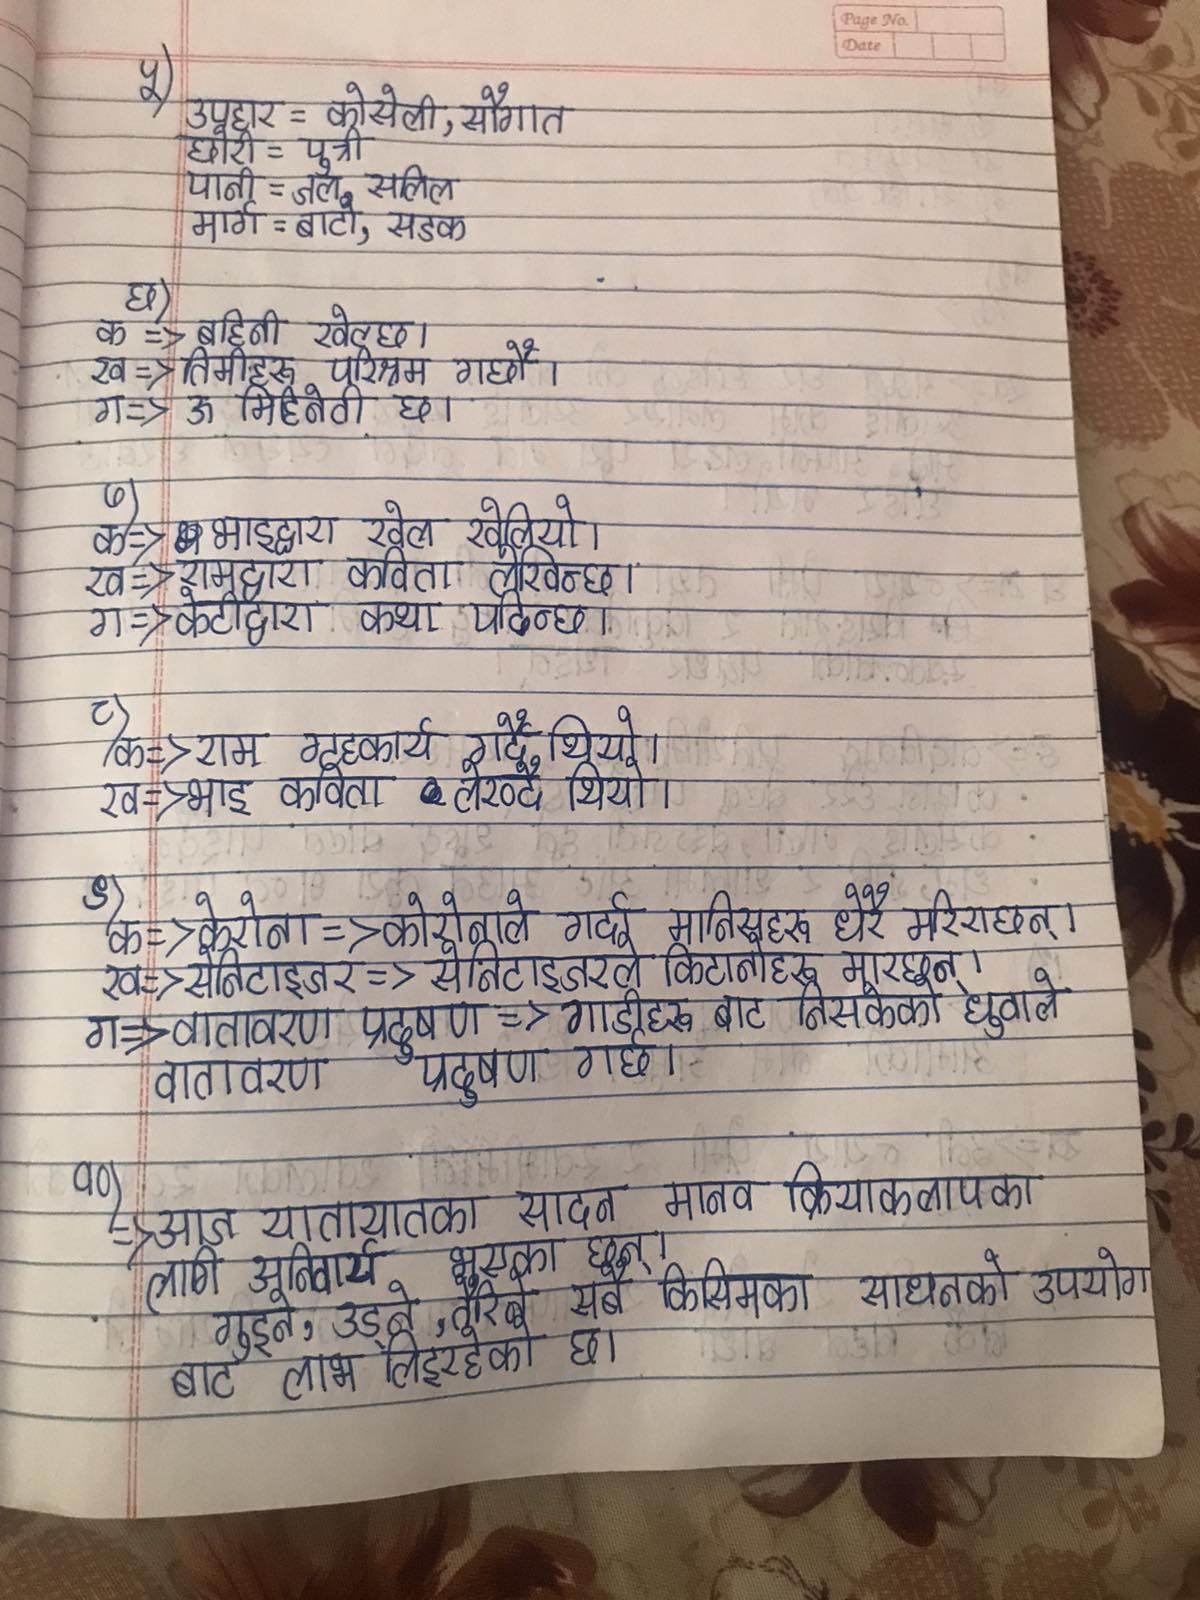 Page No.
Date
५)
उपहार = कोसेली, सौगात
छोरी = पुत्री
पानी = जल, सलिल
मार्ग = बाटो, सडक
छ)
क => बहिनी खेल्छ।
ख => तिमीहरू परिश्रम गर्छौ।
ग => ऊ मिहिनेती छ।
७)
क => भाइद्वारा खेल खेलियो।
ख => रामद्वारा कविता लेखिन्छ।
ग => केटीद्वारा कथा पढिन्छ।
८)
क => राम गृहकार्य गर्दै थियो।
ख => भाइ कविता लेख्दै थियो।
९)
क => कोरोना => कोरोनाले गर्दा मानिसहरू धेरै मरिराछन्।
ख => सेनिटाइजर => सेनिटाइजरले किटानोहरू मारछन्।
ग => वातावरण प्रदुषण => गाडीहरू बाट निसकेको धुवाले
वातावरण प्रदुषण गर्छ।
१०)
=> आज यातायातका सादन मानव क्रियाकलापका
लागि अनिवार्य भएका छन्।
गुड्ने, उड्ने, तैरिने सबै किसिमका साधनको उपयोग
बाट लाभ लिइरहेको छ।